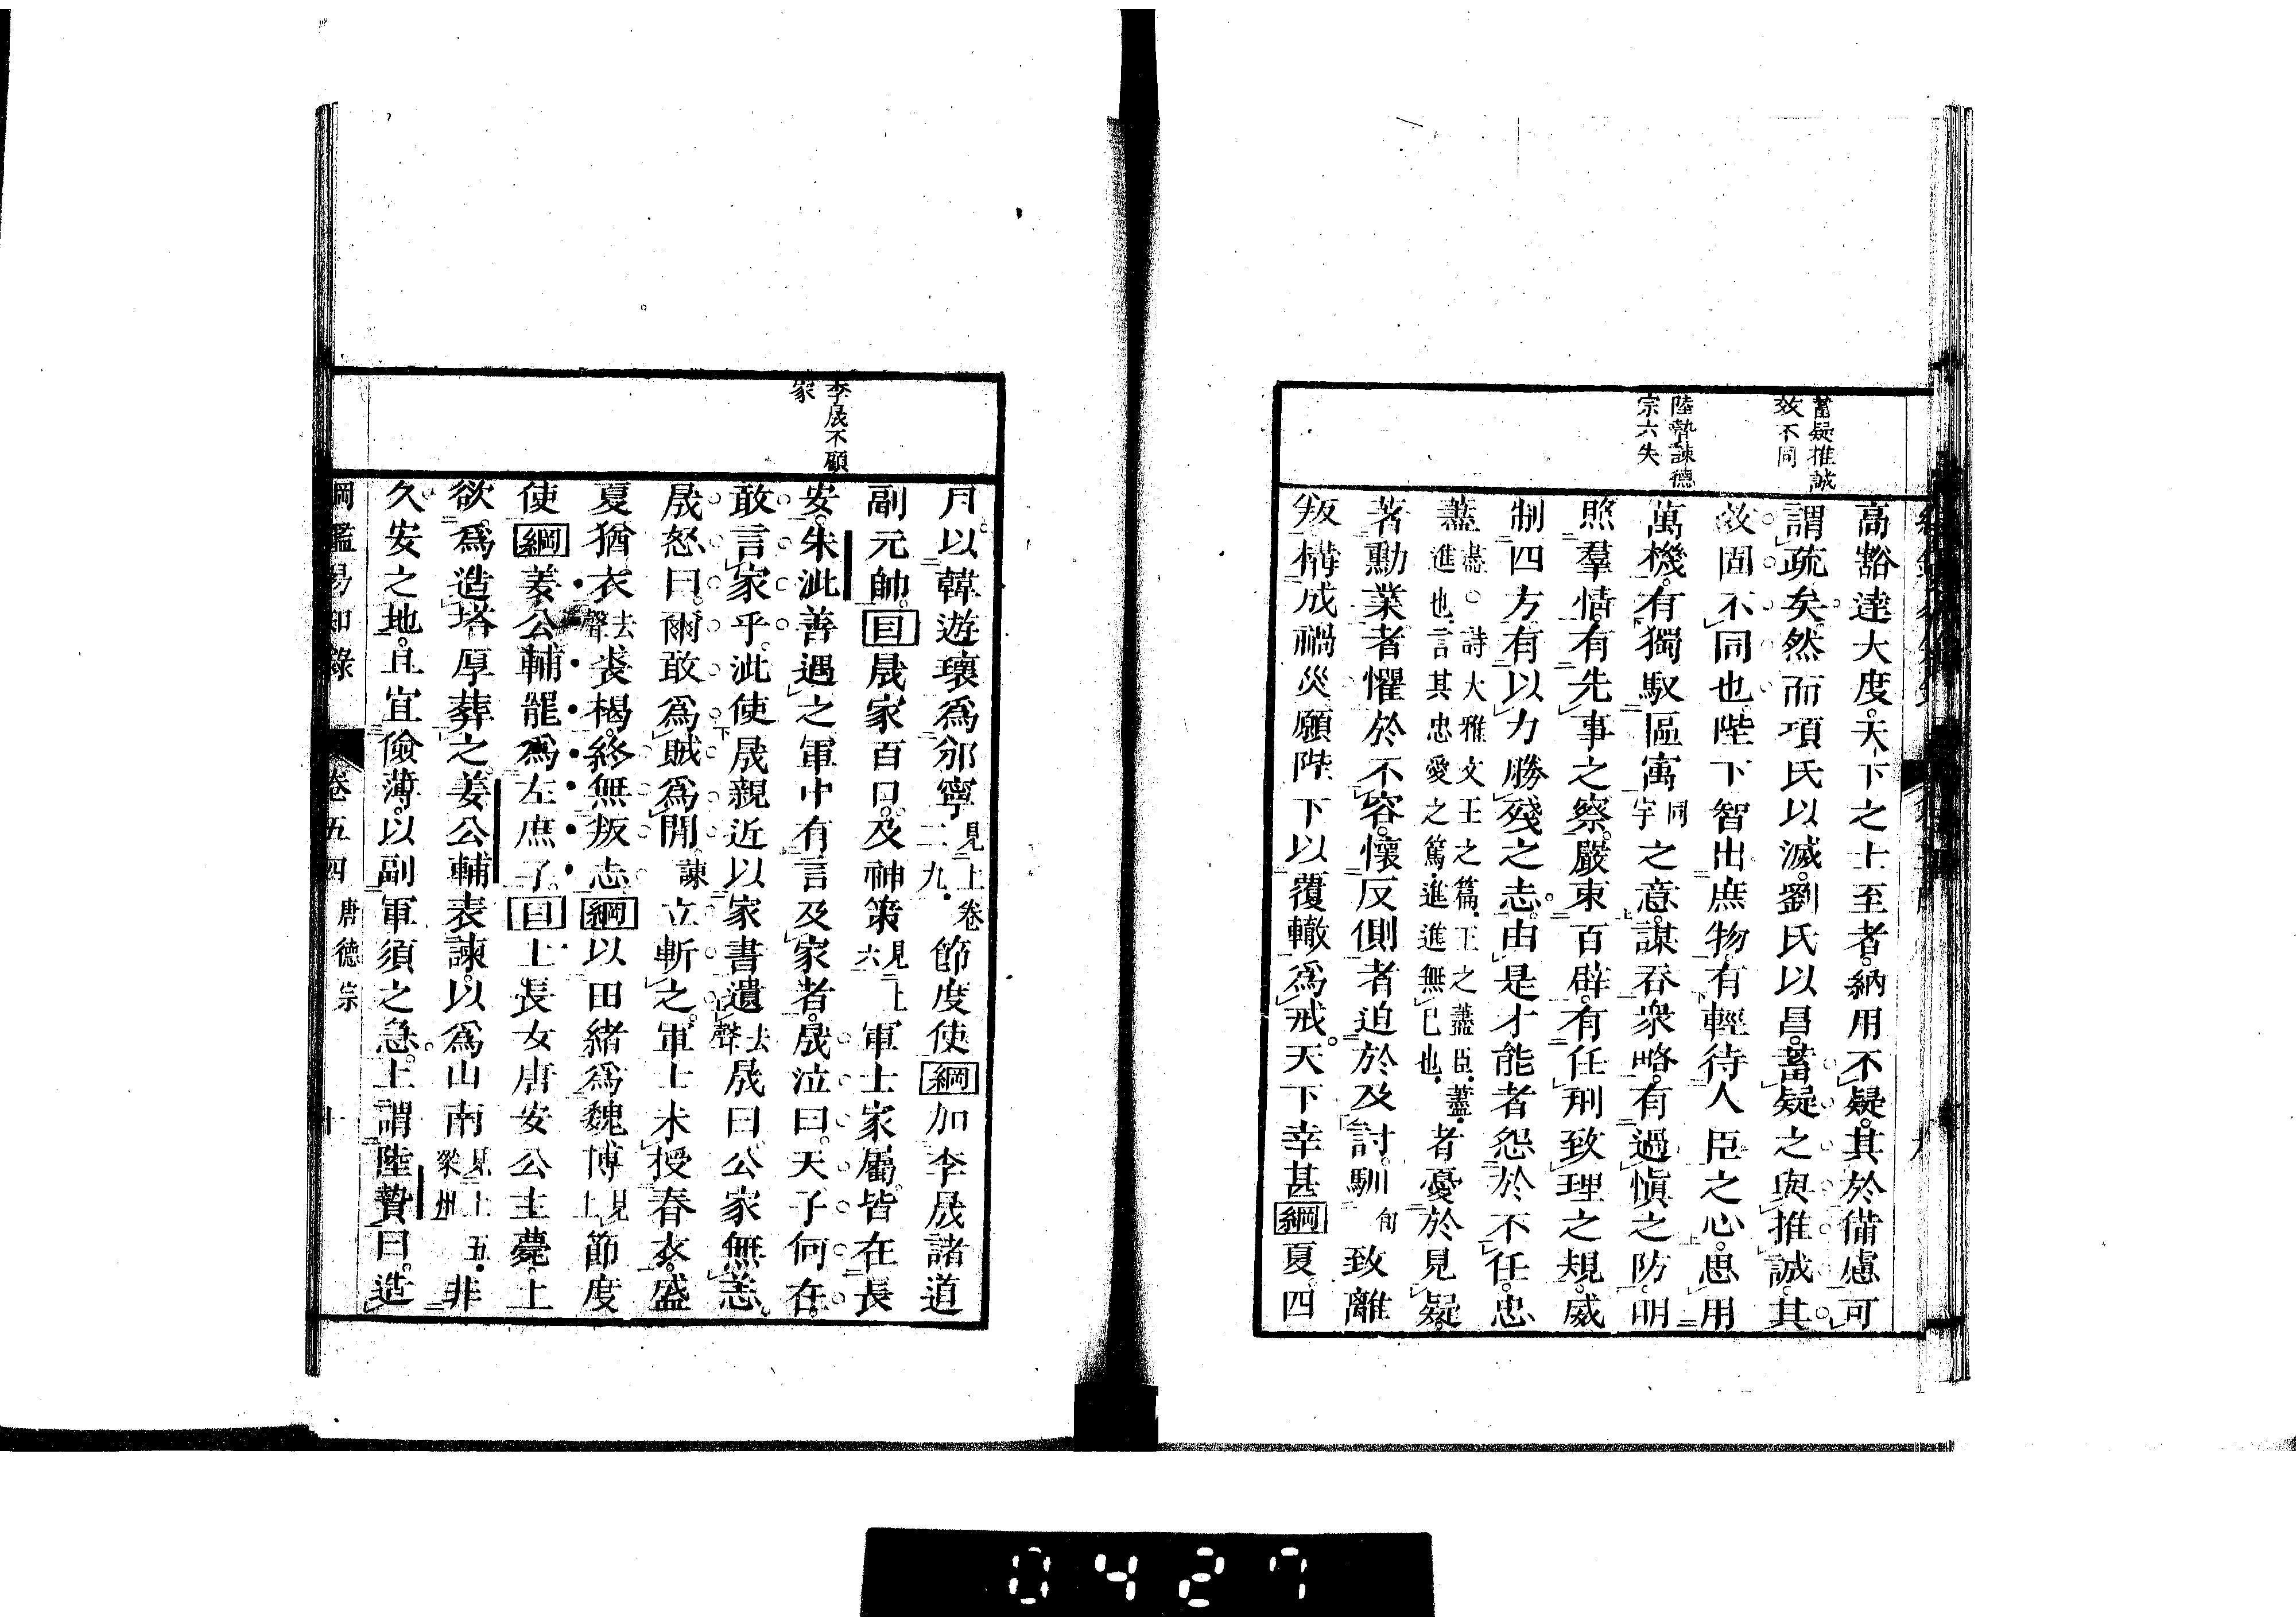 蓄疑推誠
效不同
陸贄諫德
宗六失
高豁達大度。天下之士至者。納用不疑。其於備慮可
謂疏矣。然而項氏以滅。劉氏以昌。蓄疑之與推誠。其
效固不同也。陛下智出庶物。有輕待人臣之心。思用
萬機。有獨馭區寓同宇之意。謀吞衆略。有過愼之防。明
照羣情。有先事之察。嚴束百辟。有任刑致理之規。威
制四方。有以力勝殘之志。由是才能者怨於不任。忠
藎音盡。詩大雅文王之篇。王之藎臣。藎。進也。言其忠愛之篤。進進無已也。者憂於見疑。
著勳業者懼於不容。懷反側者迫於及討。馴旬致離
叛。構成禍災。願陛下以覆轍爲戒。天下幸甚綱夏。四
李晟不顧
家
月。以韓遊瓌爲邠寧見上卷二九。節度使綱加李晟諸道
副元帥。目晟家百口。及神策見上六軍士家屬。皆在長
安。朱泚善遇之。軍中有言及家者。晟泣曰。天子何在。
敢言家乎。泚使晟親近以家書遺去聲晟曰。公家無恙。
晟怒曰。爾敢爲賊爲閒。諫立斬之。軍士未授春衣。盛
夏猶衣去聲裘褐。終無叛志。綱以田緒爲魏博見上節度
使綱姜公輔罷爲左庶子。目上長女唐安公主薨。上
欲爲造塔厚葬之。姜公輔表諫。以爲山南見上五。梁州非
久安之地。且宜儉薄。以副軍須之急。上謂陸贄曰。造
綱鑑易知錄 卷五四 唐德宗 十
0427